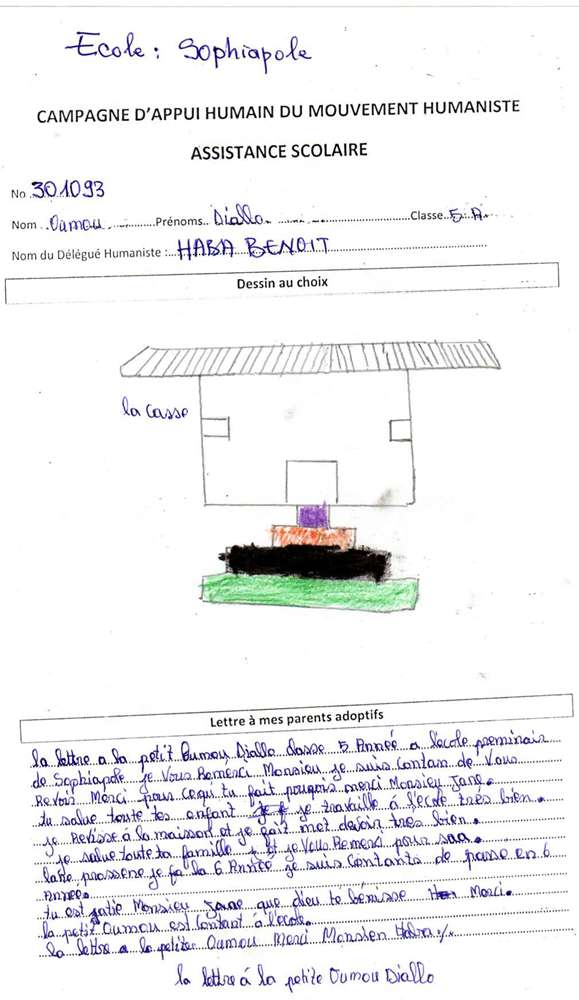 Ecole : Sophiapole
CAMPAGNE D'APPUI HUMAIN DU MOUVEMENT HUMANISTE
ASSISTANCE SCOLAIRE
No 301093
Nom Oumou Prénoms Diallo Classe 5 A
Nom du Délégué Humaniste : HABA BENOIT
Dessin au choix
la casse
Lettre à mes parents adoptifs
la lettre a la petit Oumou Diallo classe 5 Année a lecole preminair
de Sophiapole je Vous Remerci Monsieu je suis Contan de Vous
Revois Merci pour cequi tu fait pouqons merci Monsieu Jane.
tu salue toute tes enfant je travaille à l'ecole trés bien.
je Revisse à la maisson et je fait met devoir tres bien.
je salue toute ta famille Et je Vous Remerci pour saa.
prossene je fa la 6 Année je suis Contants de passe en 6
Année.
tu est Monsieu Jane que dieu te bénisse Merci.
la petit Oumou est Contant à l'ecole.
la lettre a la petite Oumou Merci Monsien
la lettre à la petite Oumou Diallo